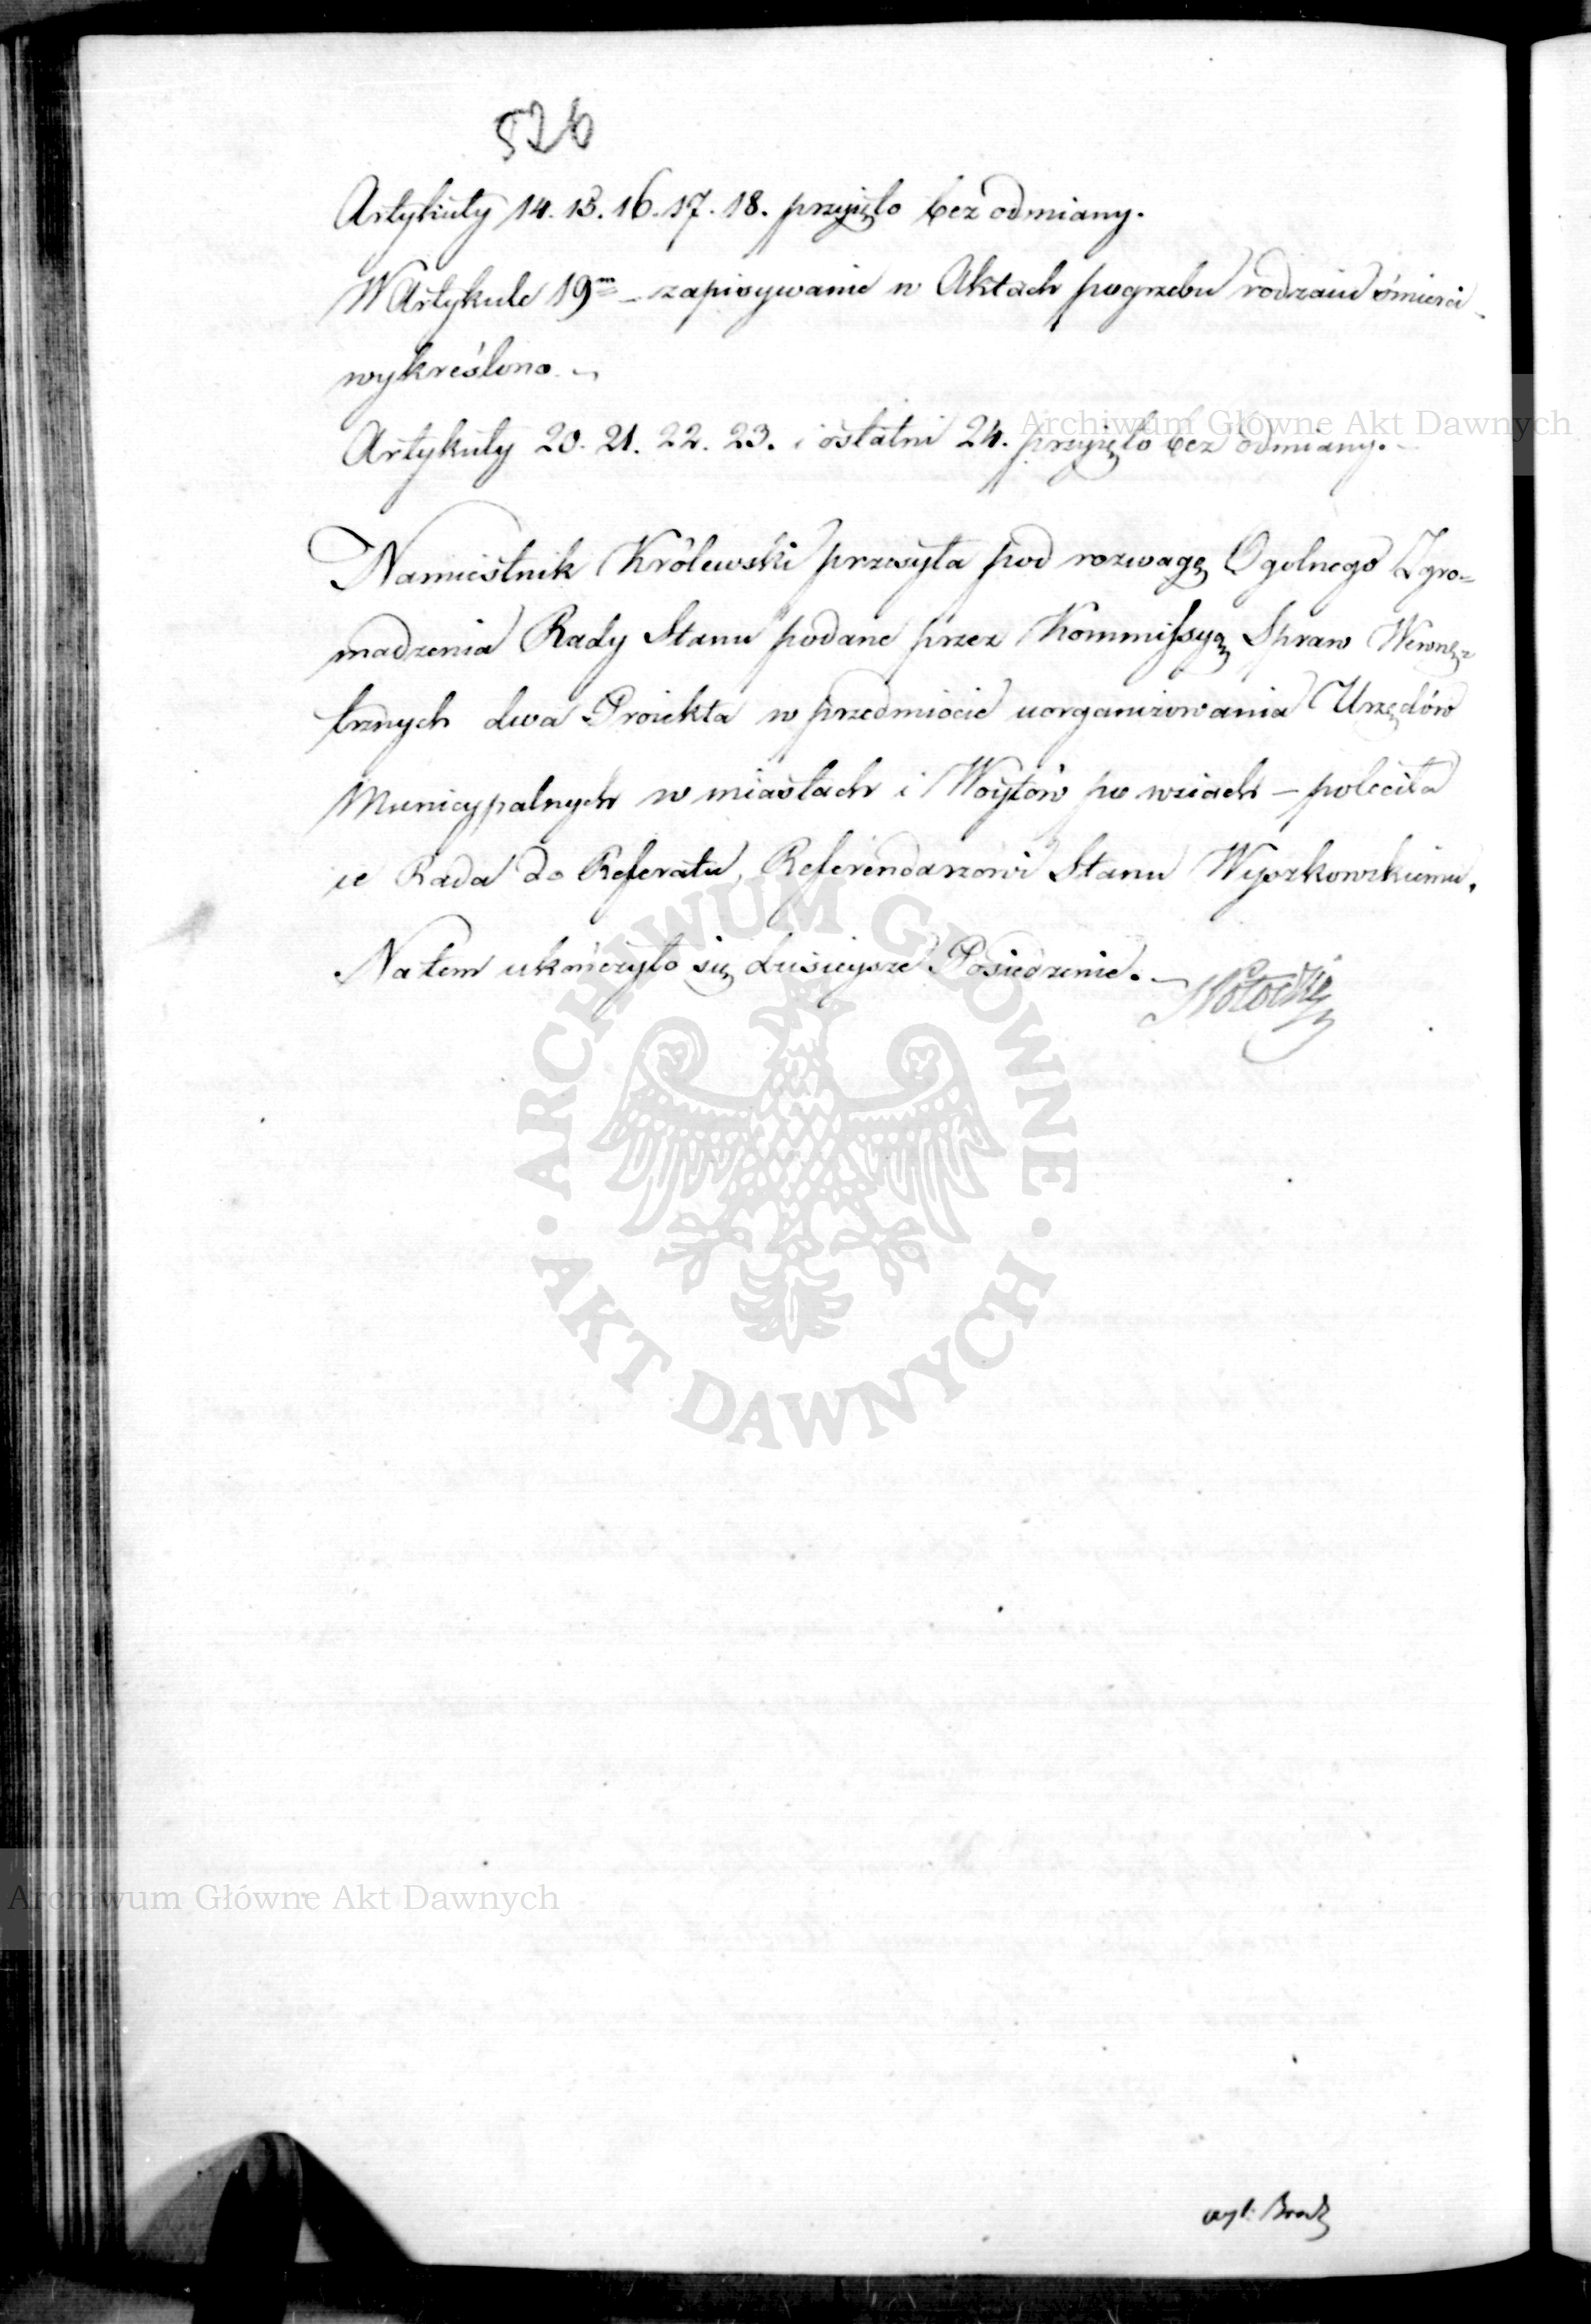 526
Artykuły 14. 15. 16. 17. 18. przyięto bez odmiany.
W Artykule 19m – zapisywanie w Aktach pogrzebu rodzaiu śmierci
wykreślono. –
Artykuły 20. 21. 22. 23. i ostatni 24. przyięto bez odmiany. –
Archiwum Główne Akt Dawnych
Namiestnik Królewski przesyła pod rozwagę Ogolnego Zgro=
madzenia Rady Stanu podane przez Kommissyą Spraw Wewnę=
trznych dwa Proiekta w przedmiocie uorganizowania Urzędów
Municypalnych w miastach i Woytów po wsiach – poleciła
ie Rada do Referatu, Referendarzowi Stanu Wyszkowskiemu.
Na tem ukończyło się dzisieysze Posiedzenie. –
ARCHIWUM GŁÓWNE
AKT DAWNYCH
Archiwum Główne Akt Dawnych